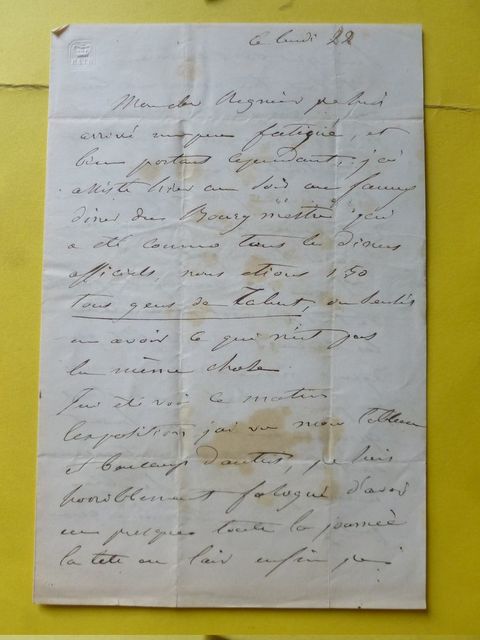 BATH
ce lundi 22
Mon cher Regnier je suis
arrivé un peu fatigué, et
bien portant cependant, j'ai
assisté hier au soir au fameux
diner du Bourgmestre qui
a été comme tous les diners
officiels, nous etions 150
tous gens de Talent, ou sensés
en avoir ce qui n'est pas
la même chose
J'ai été voir ce matin
l'exposition j'ai vu mon tableau
et beaucoup d'autres, je suis
horriblement fatigué d'avoir
eu presque toute la journée
la tete en l'air enfin